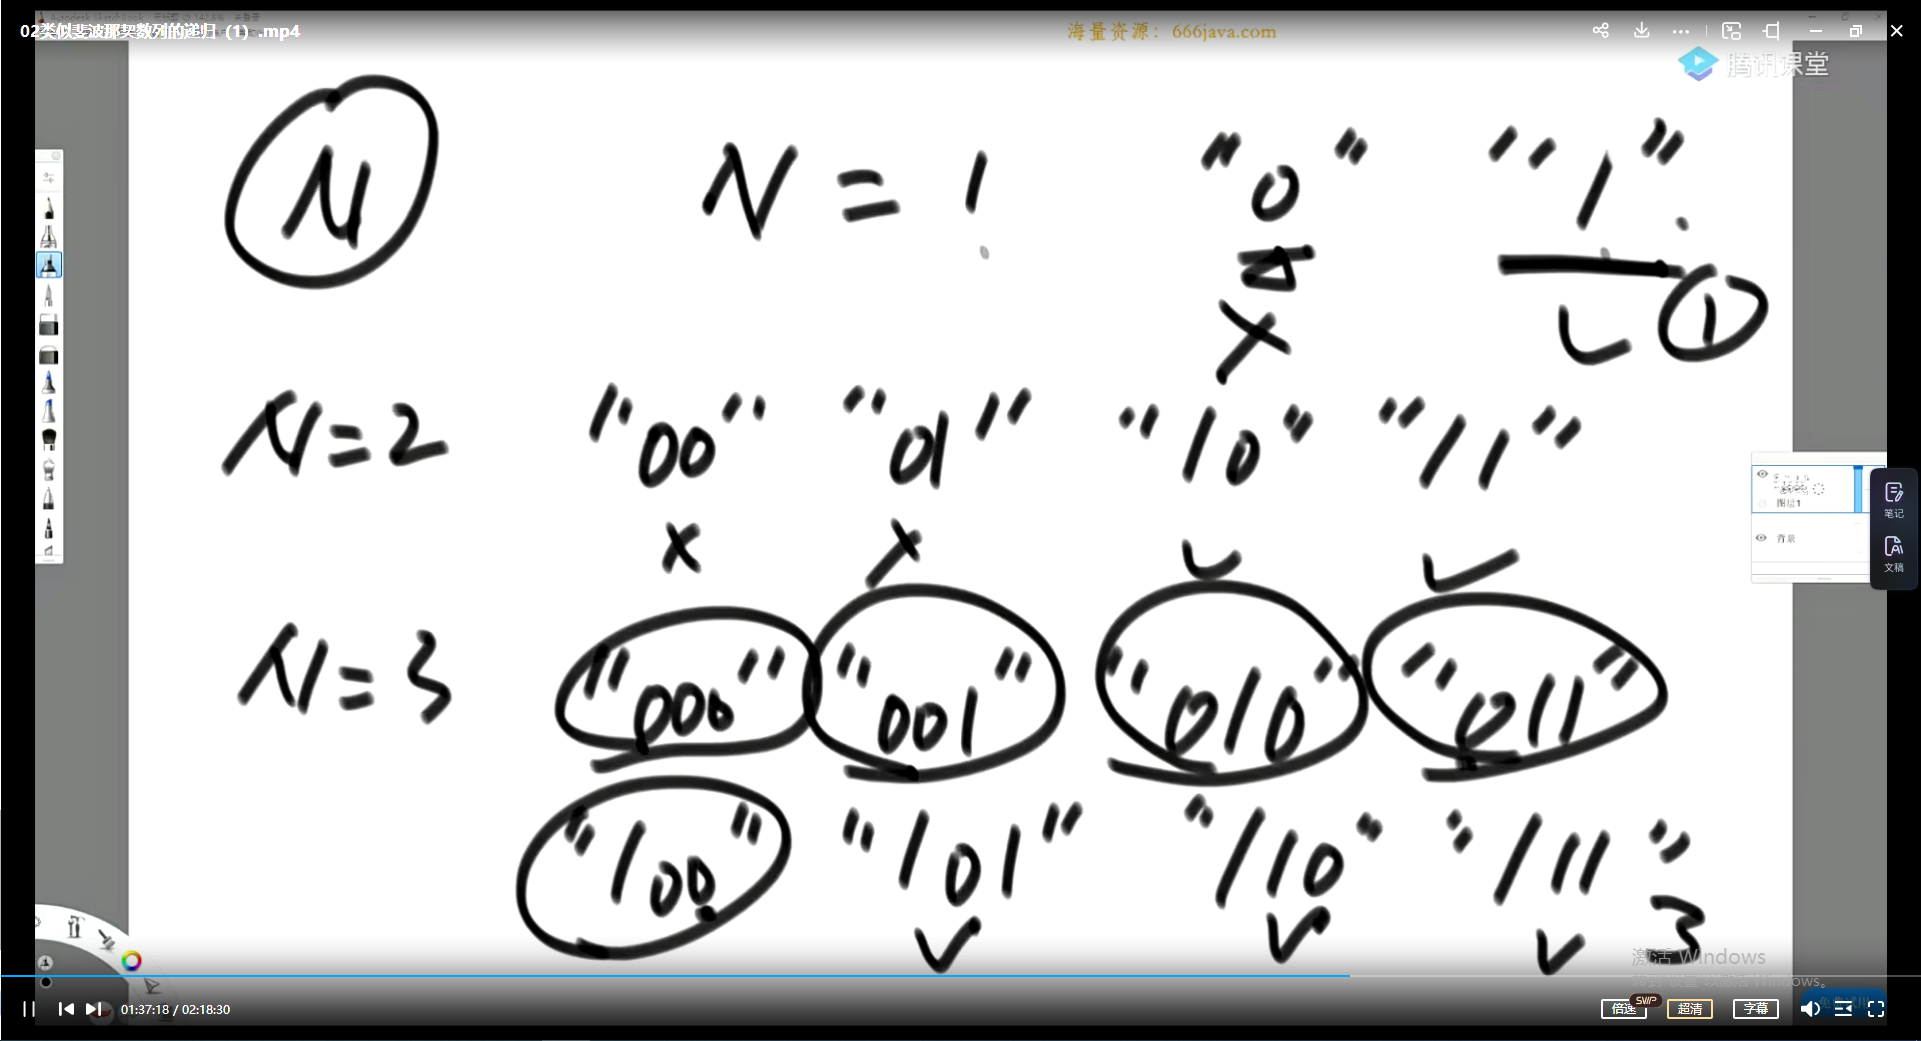 02类似斐波那契数列的递归（1）.mp4
海量资源：666java.com
腾讯课堂
N N = 1 "0" "1"
X ✓ ①
N=2 "00" "01" "10" "11"
x x ✓ ✓
N=3 "000" "001" "010" "011"
"100" "101" "110" "111"
✓ ✓ ✓ 3
图层1
背景
笔记
文稿
激活 Windows
转到"设置"以激活 Windows。
01:37:18 / 02:18:30
倍速
SVIP
超清
字幕